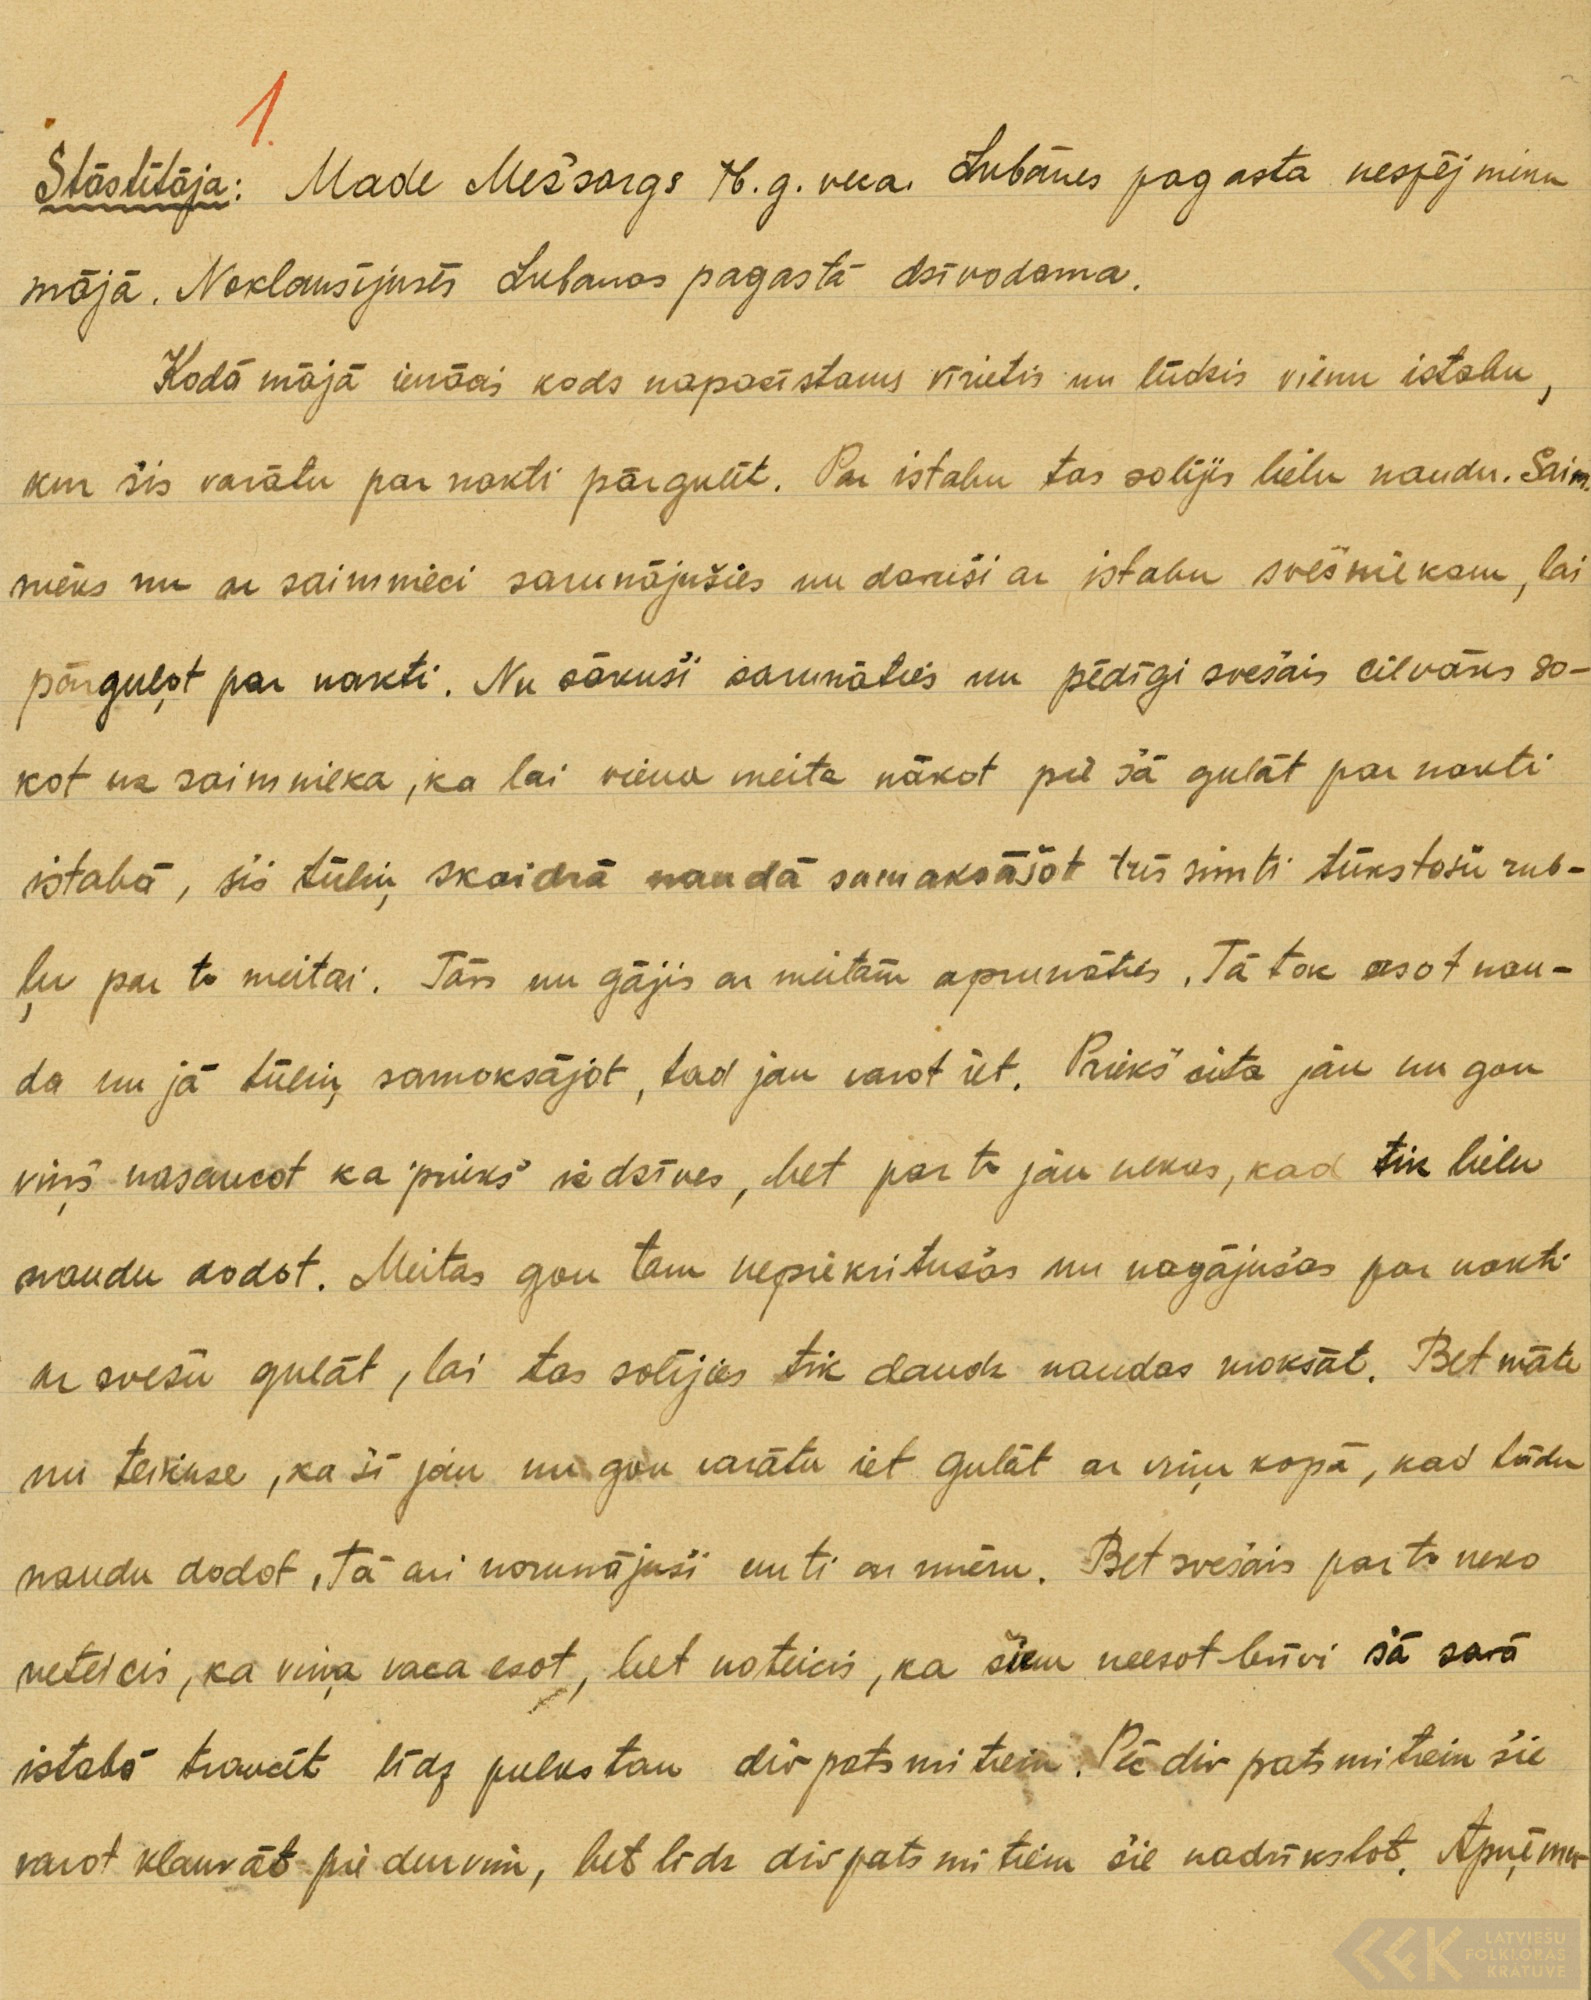 1.
Stāstītāja: Made Mešsargs 76. g. veca. Lubānes pagasta nespējnieku
mājā. Noklausījusēs Lubanas pagastā dsīvodama.
Kodā mājā ienācis kods napazīstams vīrietis un lūdzis vienu istabu,
kur šis varātu par nakti pārgulēt. Par istabu tas solījis lielu naudu. Saim-
nieks nu ar saimnieci sarunājušies un daruši ar istabu svešniekam, lai
pārguļot par nakti. Nu sākuši sarunāties un pēdīgi svešais cilvāks so-
kot uz saimnieka, ka lai viena meita nākot pie šā gulāt par nakti
istabā, šis tūliņ skaidrā naudā samaksāšot trīs simti tūkstošu rub-
ļu par to meitai. Tāvs nu gājis ar meitām aprunāties. Tā tok asot nau-
da un jā tūliņ samaksājot, tad jau varot iet. Priekš cita jau nu gan
viņš nasaucot ka priekš izdzīves, bet par to jau nekas, kad tik lielu
naudu dodot. Meitas gan tam nepiekritušas un nagājušas par nakti
ar svešu gulāt, lai tas solījies tik daudz naudas moksāt. Bet māte
nu teikuse, ka šī jau nu gan varātu iet gulāt ar viņu kopā, kad tādu
naudu dodot. Tā ari norunājuši un ti ar mieru. Bet svešais par to neko
neteicis, ka viņa vaca esot, bet noteicis, ka šiem neesot brīvi šā savā
istabā traucēt līdz pulkstan divpatsmitiem. Pē divpatsmitiem šie
varot klauvāt pie durvim, bet līdz divpatsmitiem šie nadrīkstot. Apņēmu-
LATVIEŠU
FOLKLORAS
KRĀTUVE